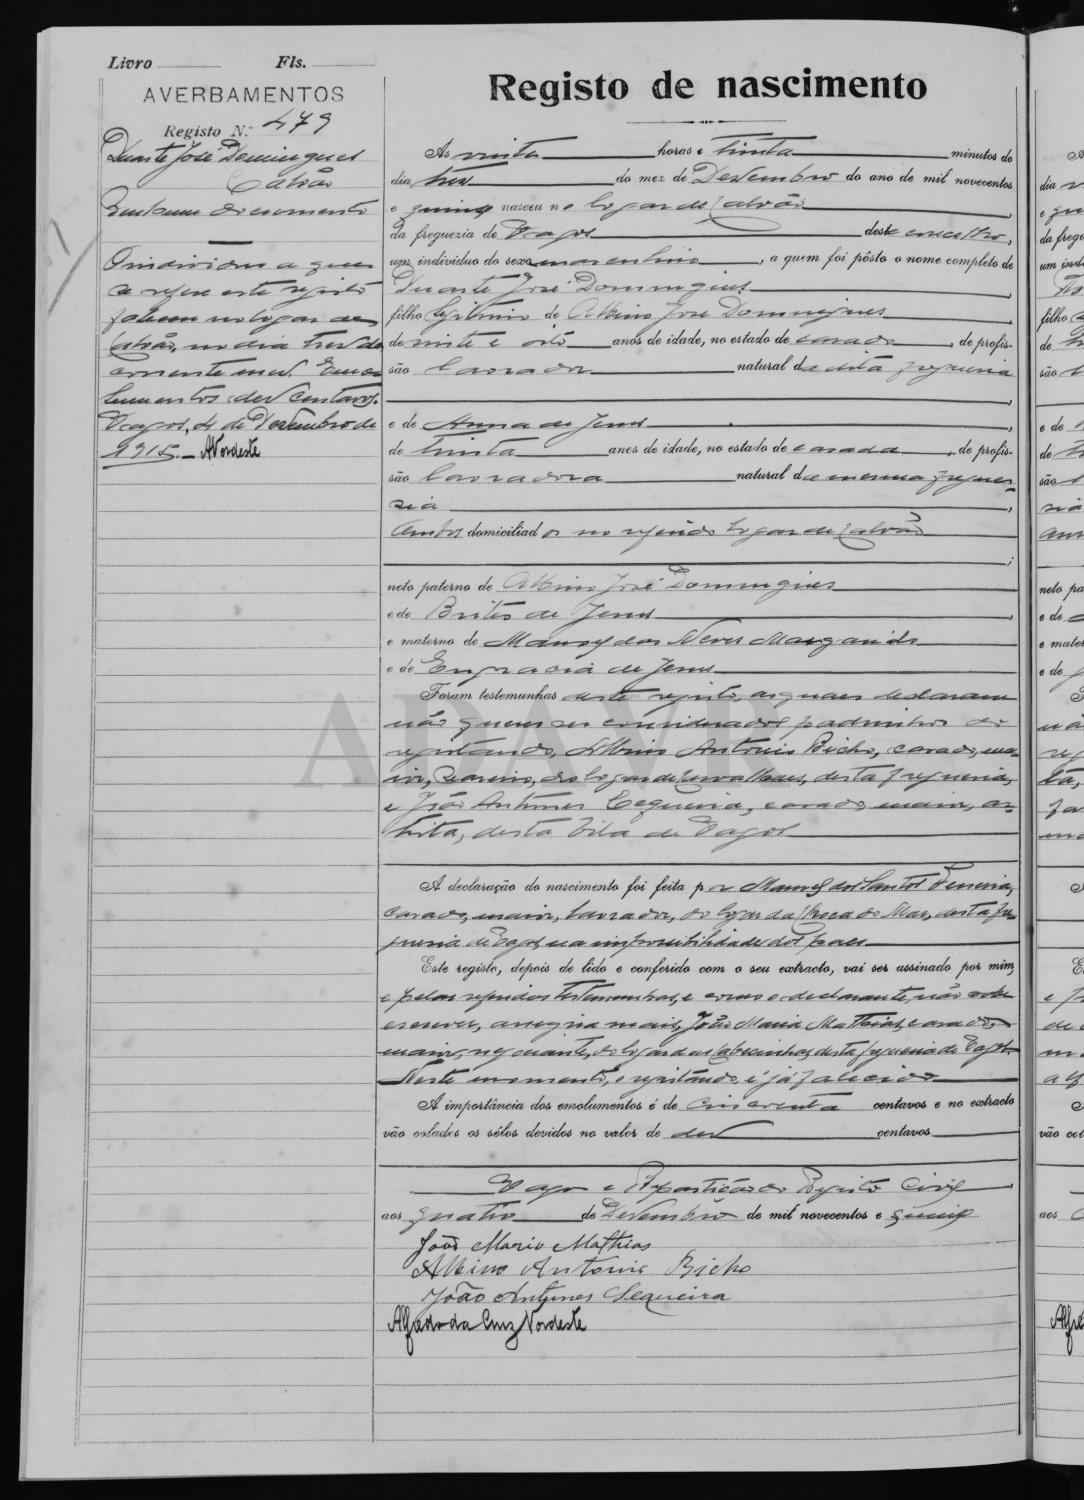 Livro Fls.
AVERBAMENTOS
Registo N.º 479
Duarte José Domingues
Calvão
Nenhum documento
O individuo a que
se refere este registo
faleceu no logar de
Calvão, no dia tres do
corrente mez. Emo-
lumentos: dez centavos.
Vagos, 4 de Dezembro de
1915. ANordeste
Registo de nascimento
Ás vinte horas e trinta minutos do
dia tres do mez de Dezembro do ano de mil novecentos
e quinze nasceu no logar de Calvão,
da freguezia de Vagos deste concelho,
um individuo do sexo masculino, a quem foi pôsto o nome completo de
Duarte José Domingues,
filho legitimo de Albino José Domingues,
de vinte e oito anos de idade, no estado de casado, de profis-
são lavrador natural desta freguesia
,
e de Anna de Jesus,
de trinta anos de idade, no estado de casada, de profis-
são lavradora natural da mesma fregue-
sia,
ambos domiciliados no referido logar de Calvão
;
neto paterno de Albino José Domingues
e de Brites de Jesus,
e materno de Manoel das Neves Margarido
e de Engracia de Jesus
Foram testemunhas deste registo, as quaes declararam
não querer ser considerados padrinhos do
registando, Albino Antonio Bicho, casado, mai-
or, do logar de desta freguesia,
e João Antunes Sequeira, casado, maior, ar-
tista, desta Vila de Vagos
A declaração do nascimento foi feita por Manoel dos Santos Ferreira,
casado, maior, lavrador, do logar da Choca do Mar, desta fre-
guesia de Vagos, na impossibilidade dos paes
Este registo, depois de lido e conferido com o seu extracto, vai ser assinado por mim,
e pelas referidas testemunhas, e como o declarante, não sabe
escrever, assigna mais, João Maria Mathias, casado,
maior, negociante, do logar das Cabecinhas, desta freguesia de Vagos.
Neste momento, o registando é já falecido
A importância dos emolumentos é de cincoenta centavos e no extracto
vão colados os sêlos devidos no valor de dez centavos
Vagos e Repartição do Registo Civil,
aos quatro de Dezembro de mil novecentos e quinze
João Maria Mathias
Albino Antonio Bicho
João Antunes Sequeira
Alfredo da Cruz Nordeste
ADAVR